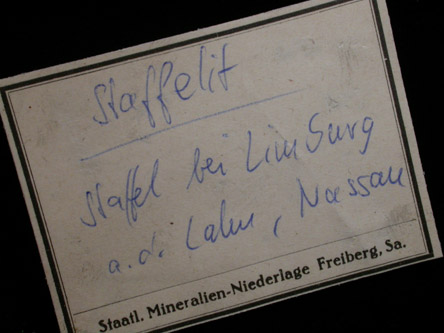 Staffelit
Staffel bei Limburg
a. d. Lahn, Nassau
Staatl. Mineralien-Niederlage Freiberg, Sa.